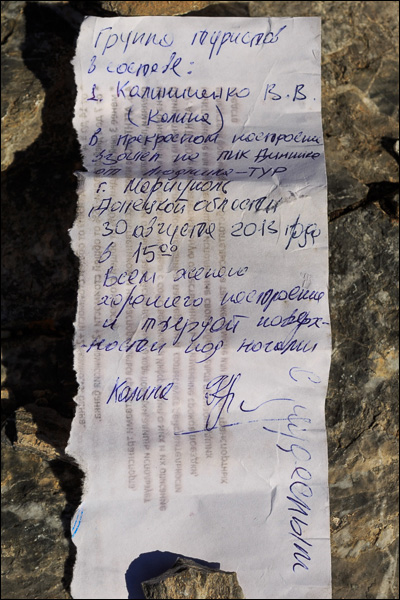 Группа туристов
в составе:
1. Калиниченко В.В.
(Калина)
в прекрасном настроении
взошел на пик Динника
от Людмила-ТУР
г. Мариуполь
Донецкой области
30 августа 2013 года
в 15⁰⁰
Всем желаю
хорошего настроения
и твердой поверх-
ности под ногами
Калина
С чудесным